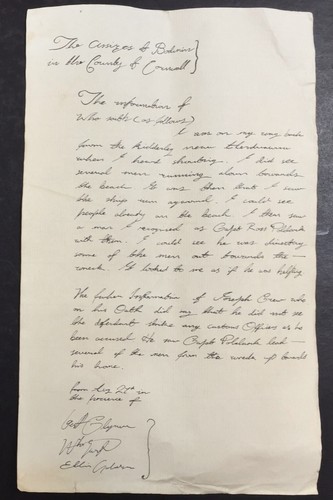 The Assizes to Bodmin
in the County of Cornwall
The information of
Who saith (as follows)
I was on my way back
from the
when I heard shouting. I did see
several men running down towards
the beach. It was then that I saw
the ship run aground. I could see
people already on the beach. I then saw
a man I recognised as Capt Ross Poldark
with them. I could see he was directing
some of the men out towards the
wreck. It looked to me as if he was helping
The further Information of Joseph Crew who
on his Oath did say that he did not see
the defendant strike any Customs Officers as he
been accused. He saw Capt Poldark lead
several of the men from the wreck up towards
his house.
the presence of